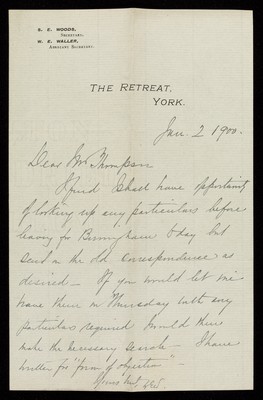 S. E. WOODS,
Secretary.
W. E. WALLER,
Assistant Secretary.
THE RETREAT,
YORK.
Jan. 2 1900.
Dear Mr Thompson
I find I shall have opportunity
of looking up any particulars before
leaving for Birmingham today but
send on the old correspondence as
desired — If you would let me
have them on Thursday with any
particulars required I would then
make the necessary search — I have
written for "form of objection" —
Yours